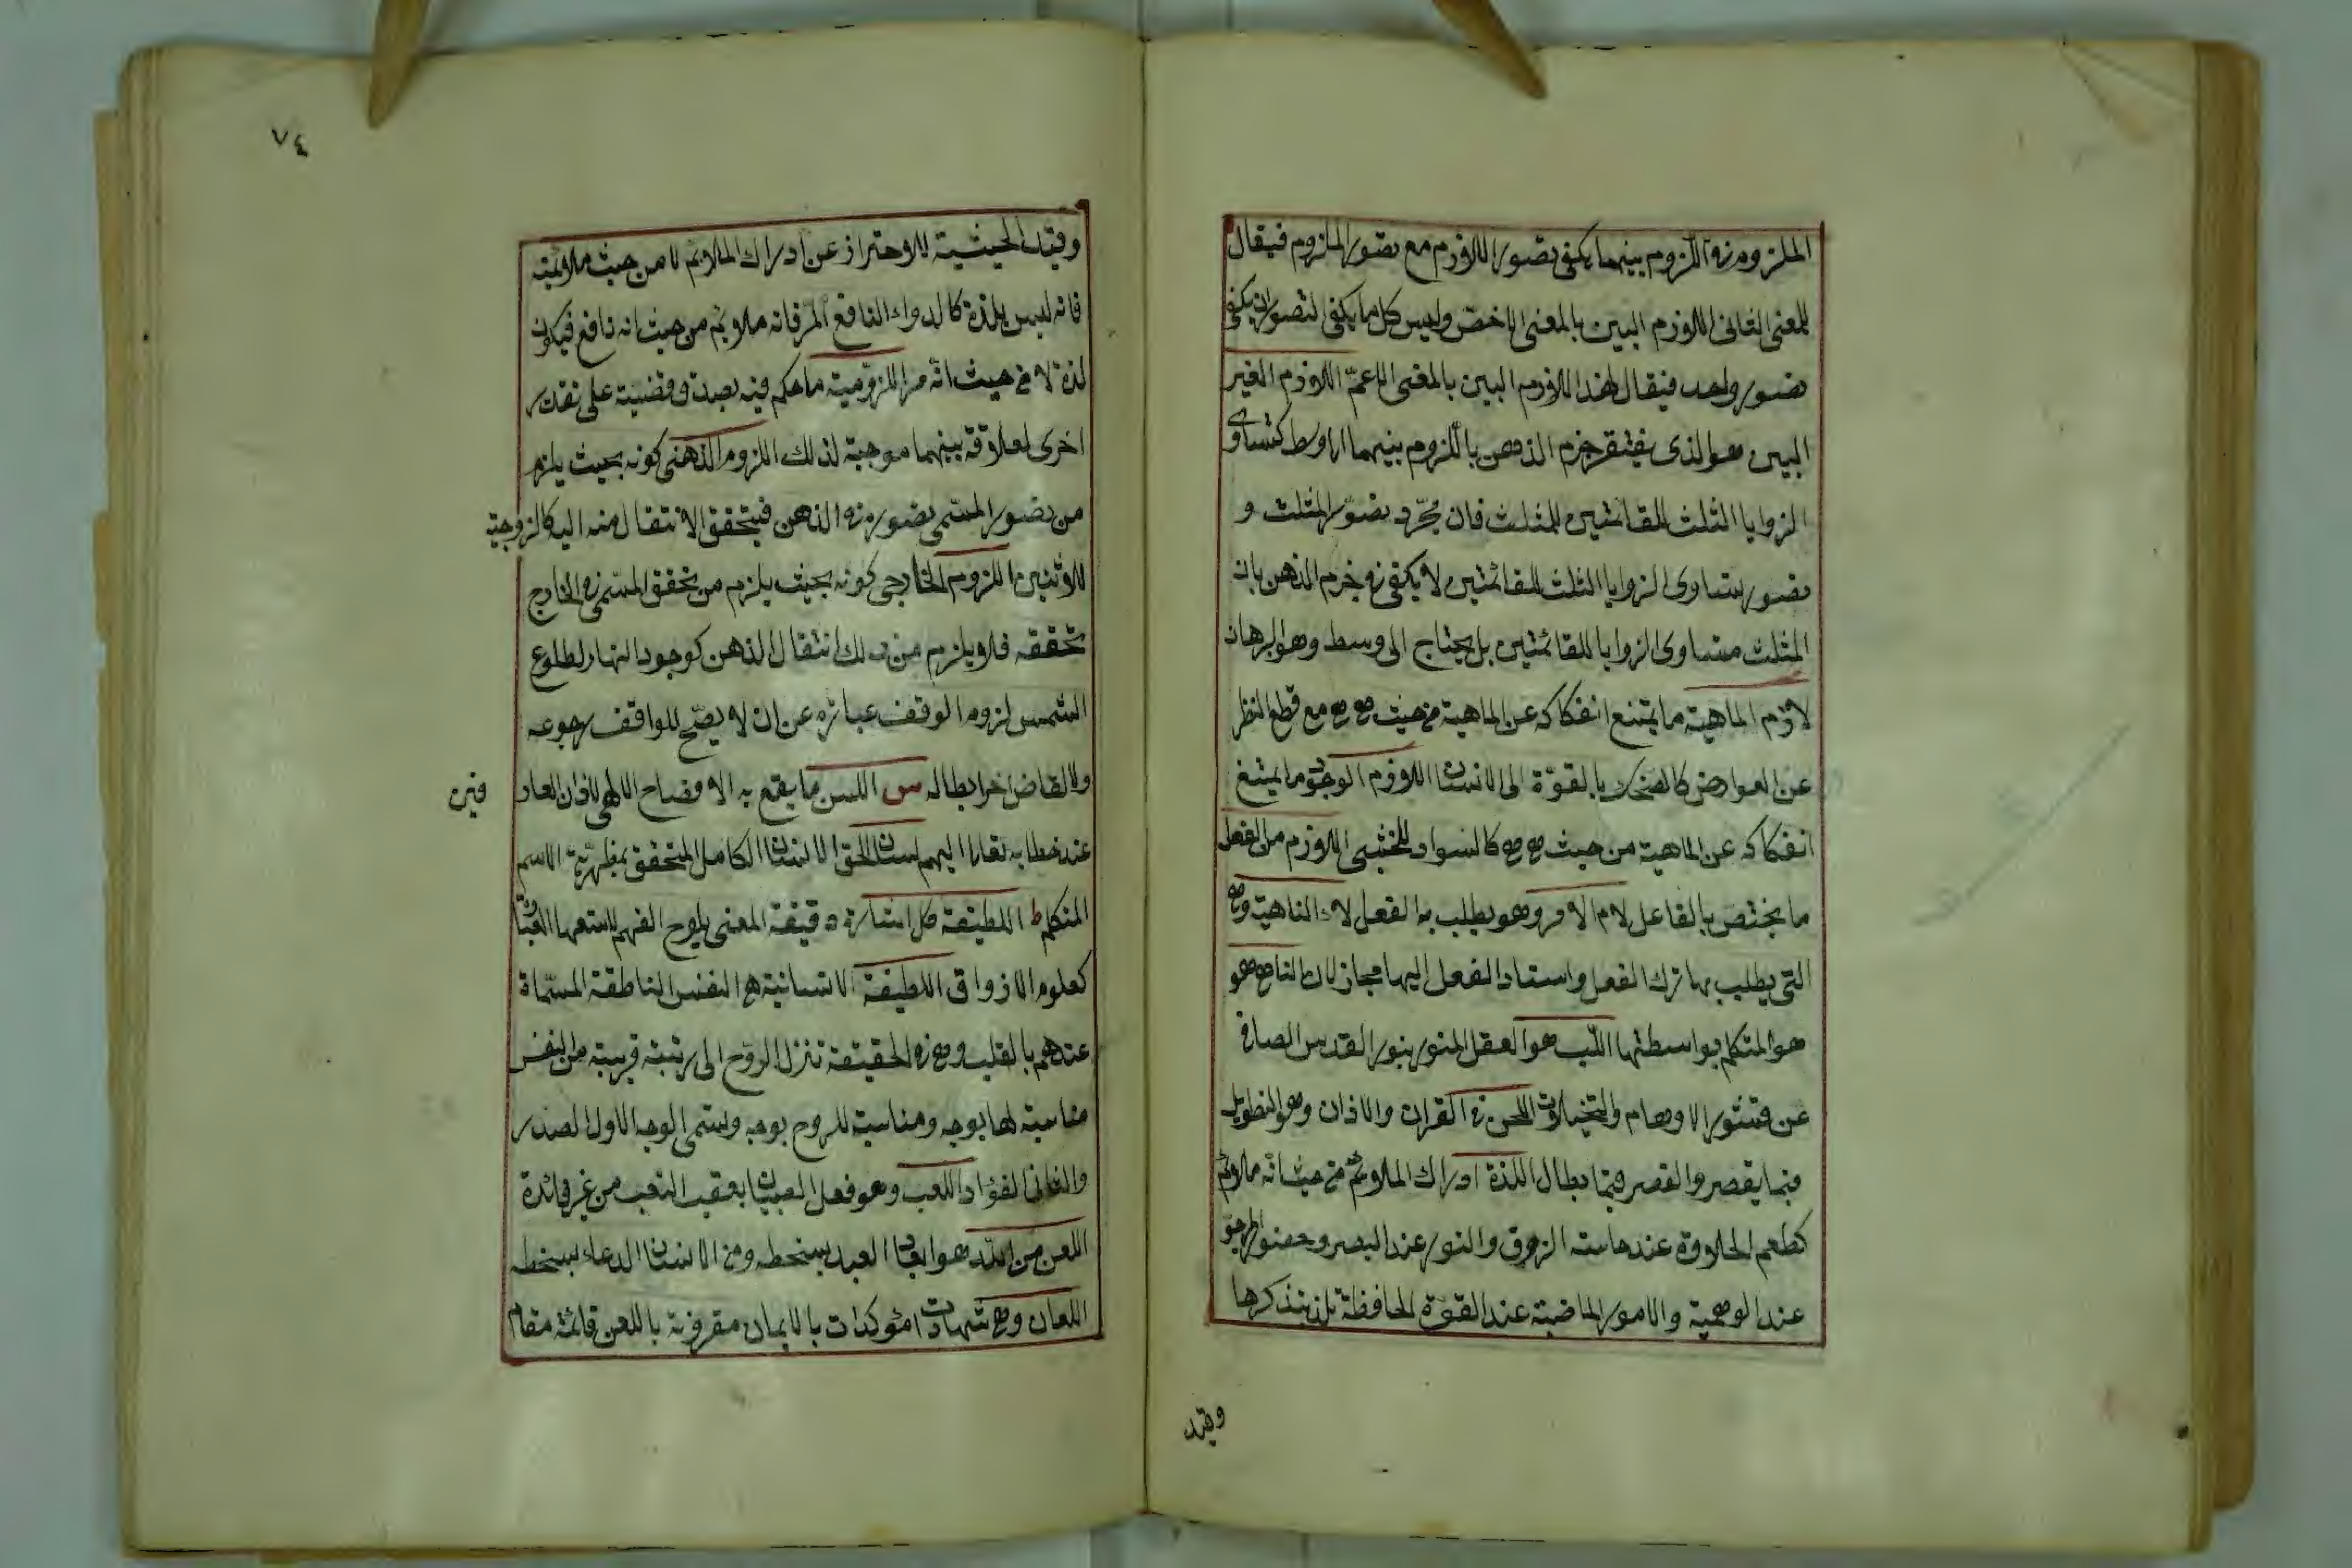 الملزوم في اللزوم بينهما يكفى تصور اللازم مع تصور الملزوم فيقال
للمعنى الثانى اللازم البين بالمعنى الاخص وليس كل ما يكفى التصوران يكفى
تصور واحد فيقال لهذا اللازم البين بالمعنى الاعم اللازم الغير
البين هو الذى يفتقر جزم الذهن باللزوم بينهما الى وسط كتساوى
الزوايا الثلث للقائمتين للمثلث فان مجرد تصور المثلث و
تصور تساوى الزوايا الثلث للقائمتين لا يكفى في جزم الذهن بان
المثلث متساوى الزوايا للقائمتين بل يحتاج الى وسط وهو البرهان
لازم الماهية ما يمتنع انفكاكه عن الماهية من حيث هي هي مع قطع النظر
عن العوارض كالضحك بالقوة الى الانسان اللازم الوجود ما يمتنع
انفكاكه عن الماهية من حيث هي هي كالسواد للحبشى اللازم من الفعل
ما يختص بالفاعل لام الامر وهو يطلب به الفعل لاء الناهية وهي
التى يطلب بها ترك الفعل واسناد الفعل اليها مجاز لان الناهي هو
هو المتكلم بواسطتها اللب هو العقل المنور بنور القدس الصافى
عن قشور الاوهام والتخيلات اللحن في القران والاذان وهو التطويل
فيما يقصر والقصر فيما يطال اللذة ادراك الملائم من حيث انه ملائم
كطعم الحلاوة عند حاسة الذوق والنور عند البصر وحضور المرجو
عند الوهمية والامور الماضية عند القوة الحافظة تلذ بتذكرها
وقيد
٧٤
وقيد الحيثية للاحتراز عن ادراك الملائم لا من حيث ملائمته
فانه ليس بلذة كالدواء النافع المر فانه ملائم من حيث انه نافع فيكون
لذة لا من حيث انه مر اللزومية ما حكم فيه بصدق قضية على تقدير
اخرى لعلاقة بينهما موجبة لذلك اللزوم الذهنى كونه بحيث يلزم
من تصور المسمى تصوره في الذهن فيتحقق الانتقال منه اليه كالزوجية
للاثنين اللزوم الخارجى كونه بحيث يلزم من تحقق المسمى في الخارج
تحققه فلا يلزم من ذلك انتقال الذهن كوجود النهار لطلوع
الشمس لزوم الوقف عبارة عن ان لا يصح للواقف رجوعه
ولا لقاض اخر ابطاله س اللسن ما يقع به الافصاح الالهى لاذان العار
فين
عند خطابه تعالى اليهم لسان الحق الانسان الكامل المتحقق بمظهرية الاسم
المتكلم ط اللطيفة كل اشارة دقيقة المعنى يلوح الفهم لا تسعها العبارة
كعلوم الاذواق اللطيفة الانسانية هي النفس الناطقة المسماة
عندهم بالقلب وهي في الحقيقة تنزل الروح الى رتبة قريبة من النفس
مناسبة لها بوجه ومناسبة للروح بوجه ويسمى الوجه الاول الصدر
والثانى الفؤاد اللعب وهو فعل الصبيان يعقب التعب من غير فائدة
اللعن من الله هو ابعاد العبد بسخطه ومن الانسان الدعاء بسخطه
اللعان وهي شهادات مؤكدات بالايمان مقرونة باللعن قائمة مقام